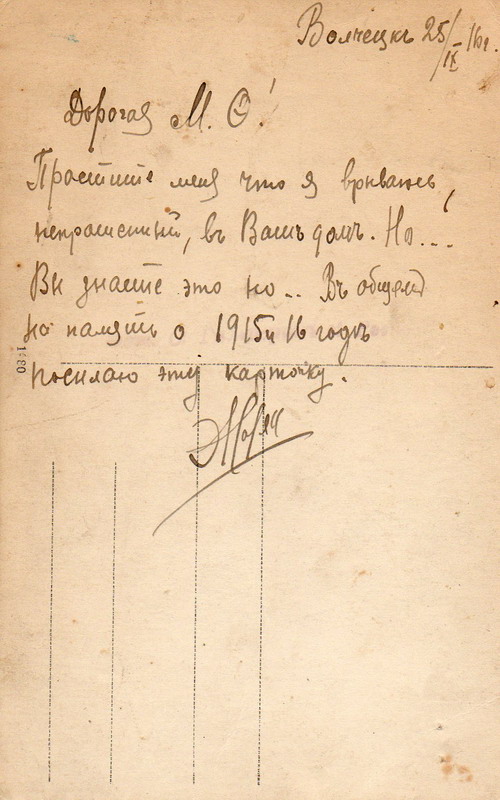 Волчецкъ 25/IX 16г.
Дорогая М. О!
Простите меня что я врываюсь,
непрошенный, въ Вашъ домъ. Но...
Вы знаете это но.. Въ общемъ
на память о 1915 и 16 годъ
посылаю эту карточку.
1:80